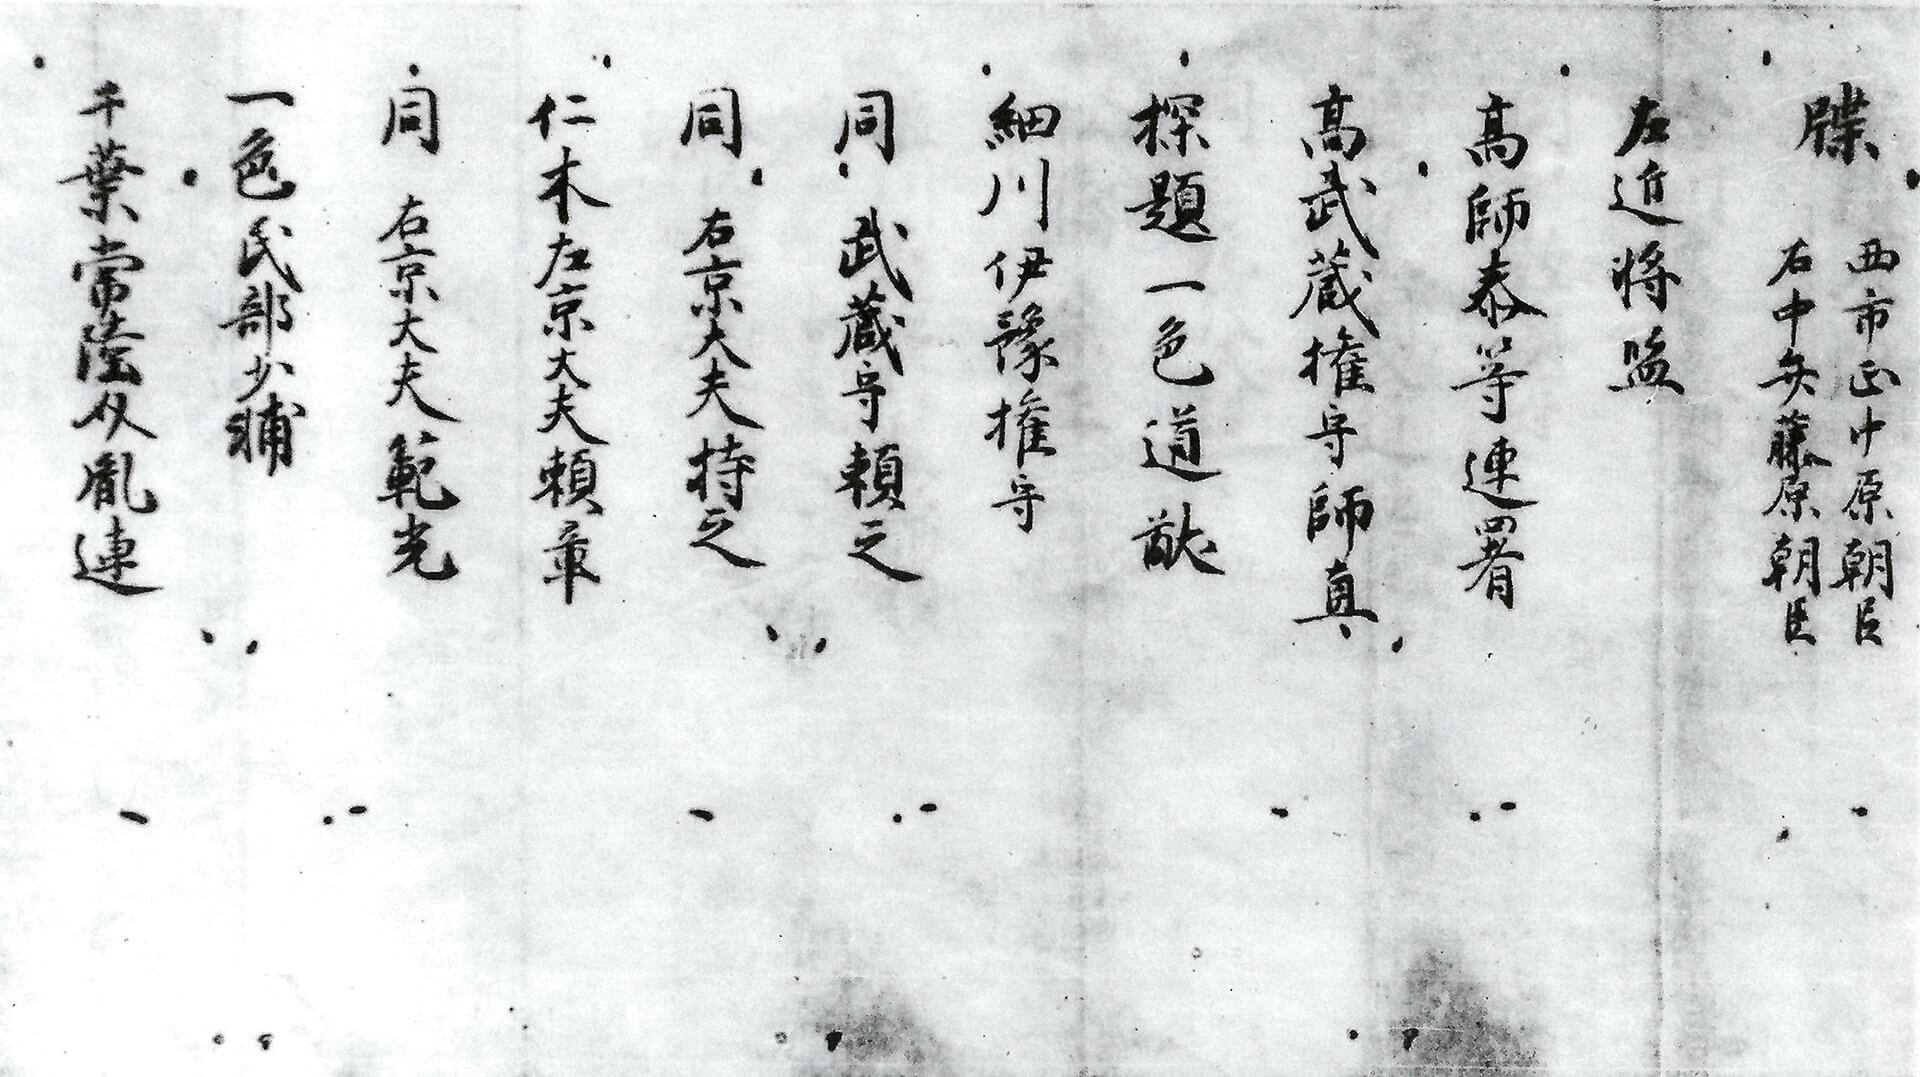 牒 西市正中原朝臣
右中弁藤原朝臣
左近将監
高師泰等連署
高武蔵権守師直
探題一色道猷
細川伊豫権守
同 武蔵守頼之
同 右京大夫持之
仁木左京大夫頼章
同 右京大夫範光
一色民部少輔
千葉常陸介胤連